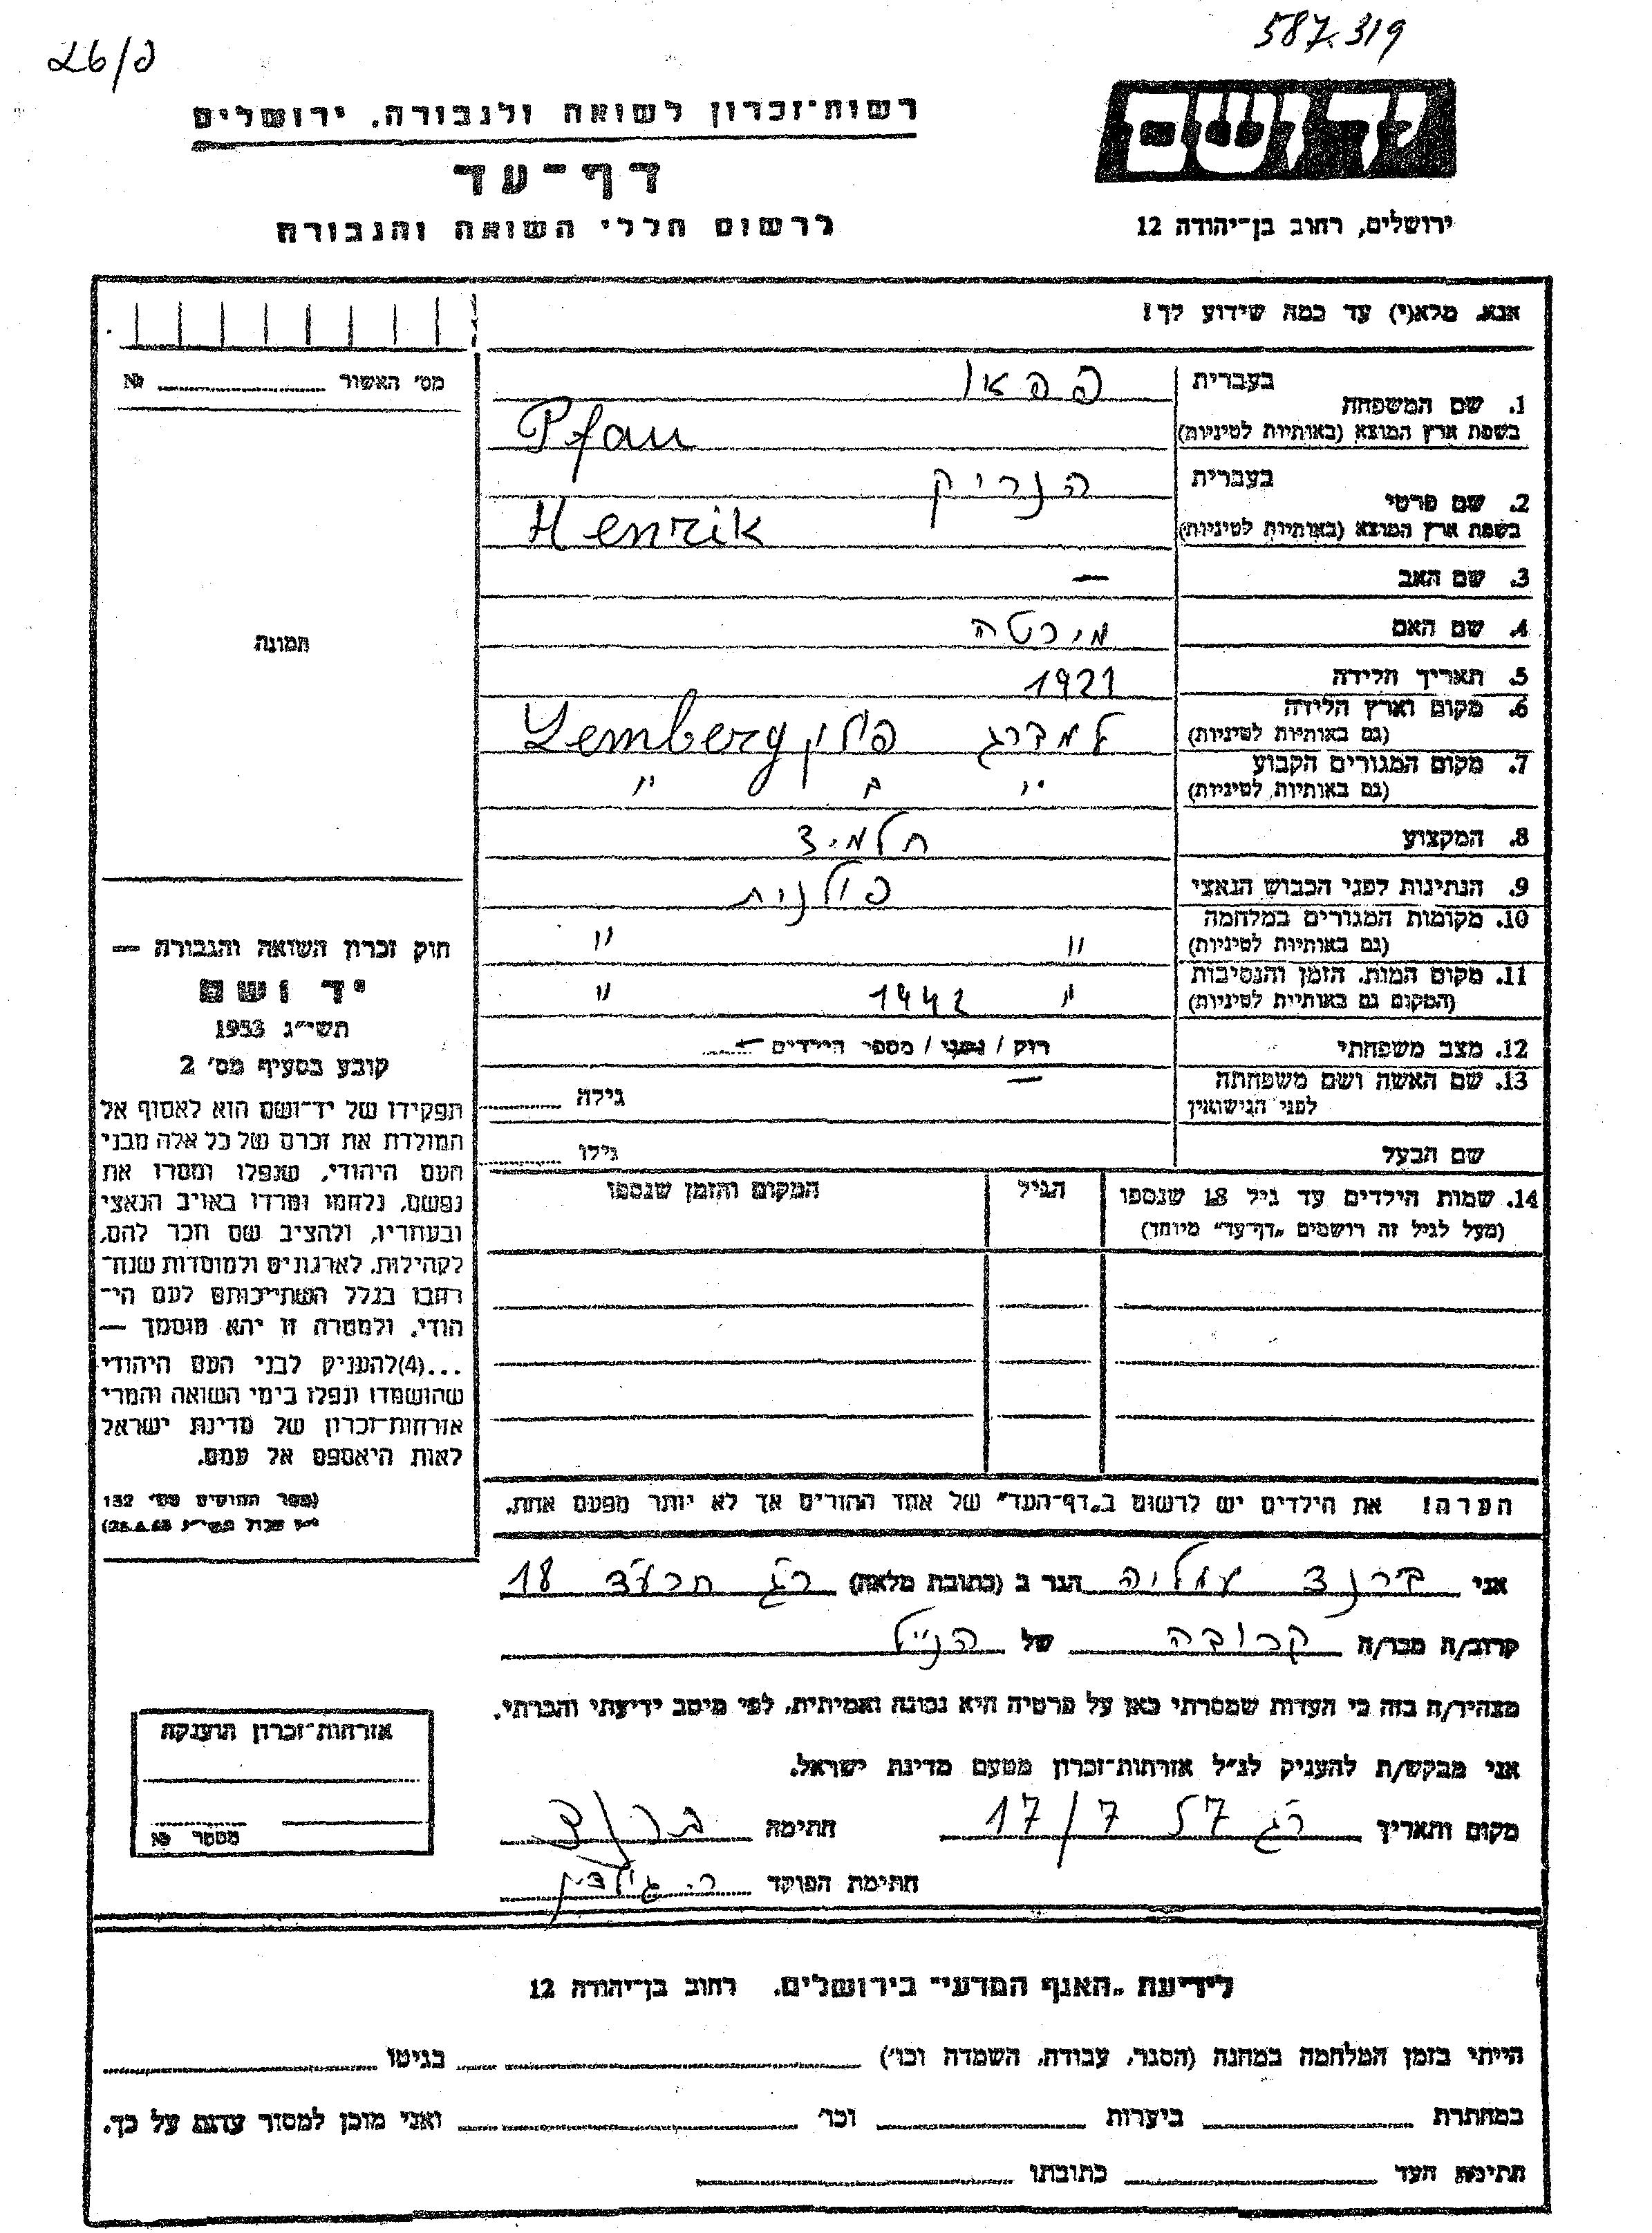 587.319
26/פ
רשות־זכרון לשואה ולגבורה, ירושלים
דף־עד
לרשום חללי השואה והגבורה
ידושם
ירושלים, רחוב בן־יהודה 12
אנא, מלא(י) עד כמה שידוע לך!
מס' האשור №
1. שם המשפחה
בעברית פפאו
בשפת ארץ המוצא (באותיות לטיניות) Pfau
2. שם פרטי
בעברית הנריק
בשפת ארץ המוצא (באותיות לטיניות) Henrik
3. שם האב —
4. שם האם מירטה
5. תאריך הלידה 1921
6. מקום וארץ הלידה
(גם באותיות לטיניות) למברג פולין Lemberg
7. מקום המגורים הקבוע
(גם באותיות לטיניות) " " "
8. המקצוע תלמיד
9. הנתינות לפני הכבוש הנאצי פולנית
10. מקומות המגורים במלחמה
(גם באותיות לטיניות) " "
11. מקום המות, הזמן והנסיבות
(המקום גם באותיות לטיניות) " 1942 "
12. מצב משפחתי רוק / נשוי / מספר הילדים —
13. שם האשה ושם משפחתה
לפני הנישואין — גילה
שם הבעל גילו
14. שמות הילדים עד גיל 18 שנספו
(מעל לגיל זה רושמים „דף־עד" מיוחד)
הגיל
המקום והזמן שנספו
הערה! את הילדים יש לרשום ב„דף־העד" של אחד ההורים אך לא יותר מפעם אחת.
תמונה
חוק זכרון השואה והגבורה —
יד ושם
תשי״ג 1953
קובע בסעיף מס' 2
תפקידו של יד־ושם הוא לאסוף אל
המולדת את זכרם של כל אלה מבני
העם היהודי, שנפלו ומסרו את
נפשם, נלחמו ומרדו באויב הנאצי
ובעוזריו, ולהציב שם וזכר להם,
לקהילות, לארגונים ולמוסדות שנח־
רבו בגלל השתייכותם לעם הי־
הודי, ולמטרה זו יהא מוסמך —
...(4)להעניק לבני העם היהודי
שהושמדו ונפלו בימי השואה והמרי
אזרחות־זכרון של מדינת ישראל
לאות היאספם אל עמם.
(ספר החוקים מס' 132
אני ברנד עמליה הגר ב (כתובת מלאה) ר"ג תרע"ד 18
קרוב/ה מכר/ה קרובה של הנ"ל
מצהיר/ה בזה כי העדות שמסרתי כאן על פרטיה היא נכונה ואמיתית, לפי מיטב ידיעתי והכרתי.
אני מבקש/ת להעניק לנ״ל אזרחות־זכרון מטעם מדינת ישראל.
מקום ותאריך ר"ג 17/7 57 חתימה ברנד
חתימת הפוקד
אזרחות־זכרון הוענקה
מספר №
לידיעת „האגף המדעי" בירושלים, רחוב בן־יהודה 12
הייתי בזמן המלחמה במחנה (הסגר, עבודה, השמדה וכו') בגיטו
במחתרת ביערות וכו' ואני מוכן למסור עדות על כך.
חתימת העד כתובתו